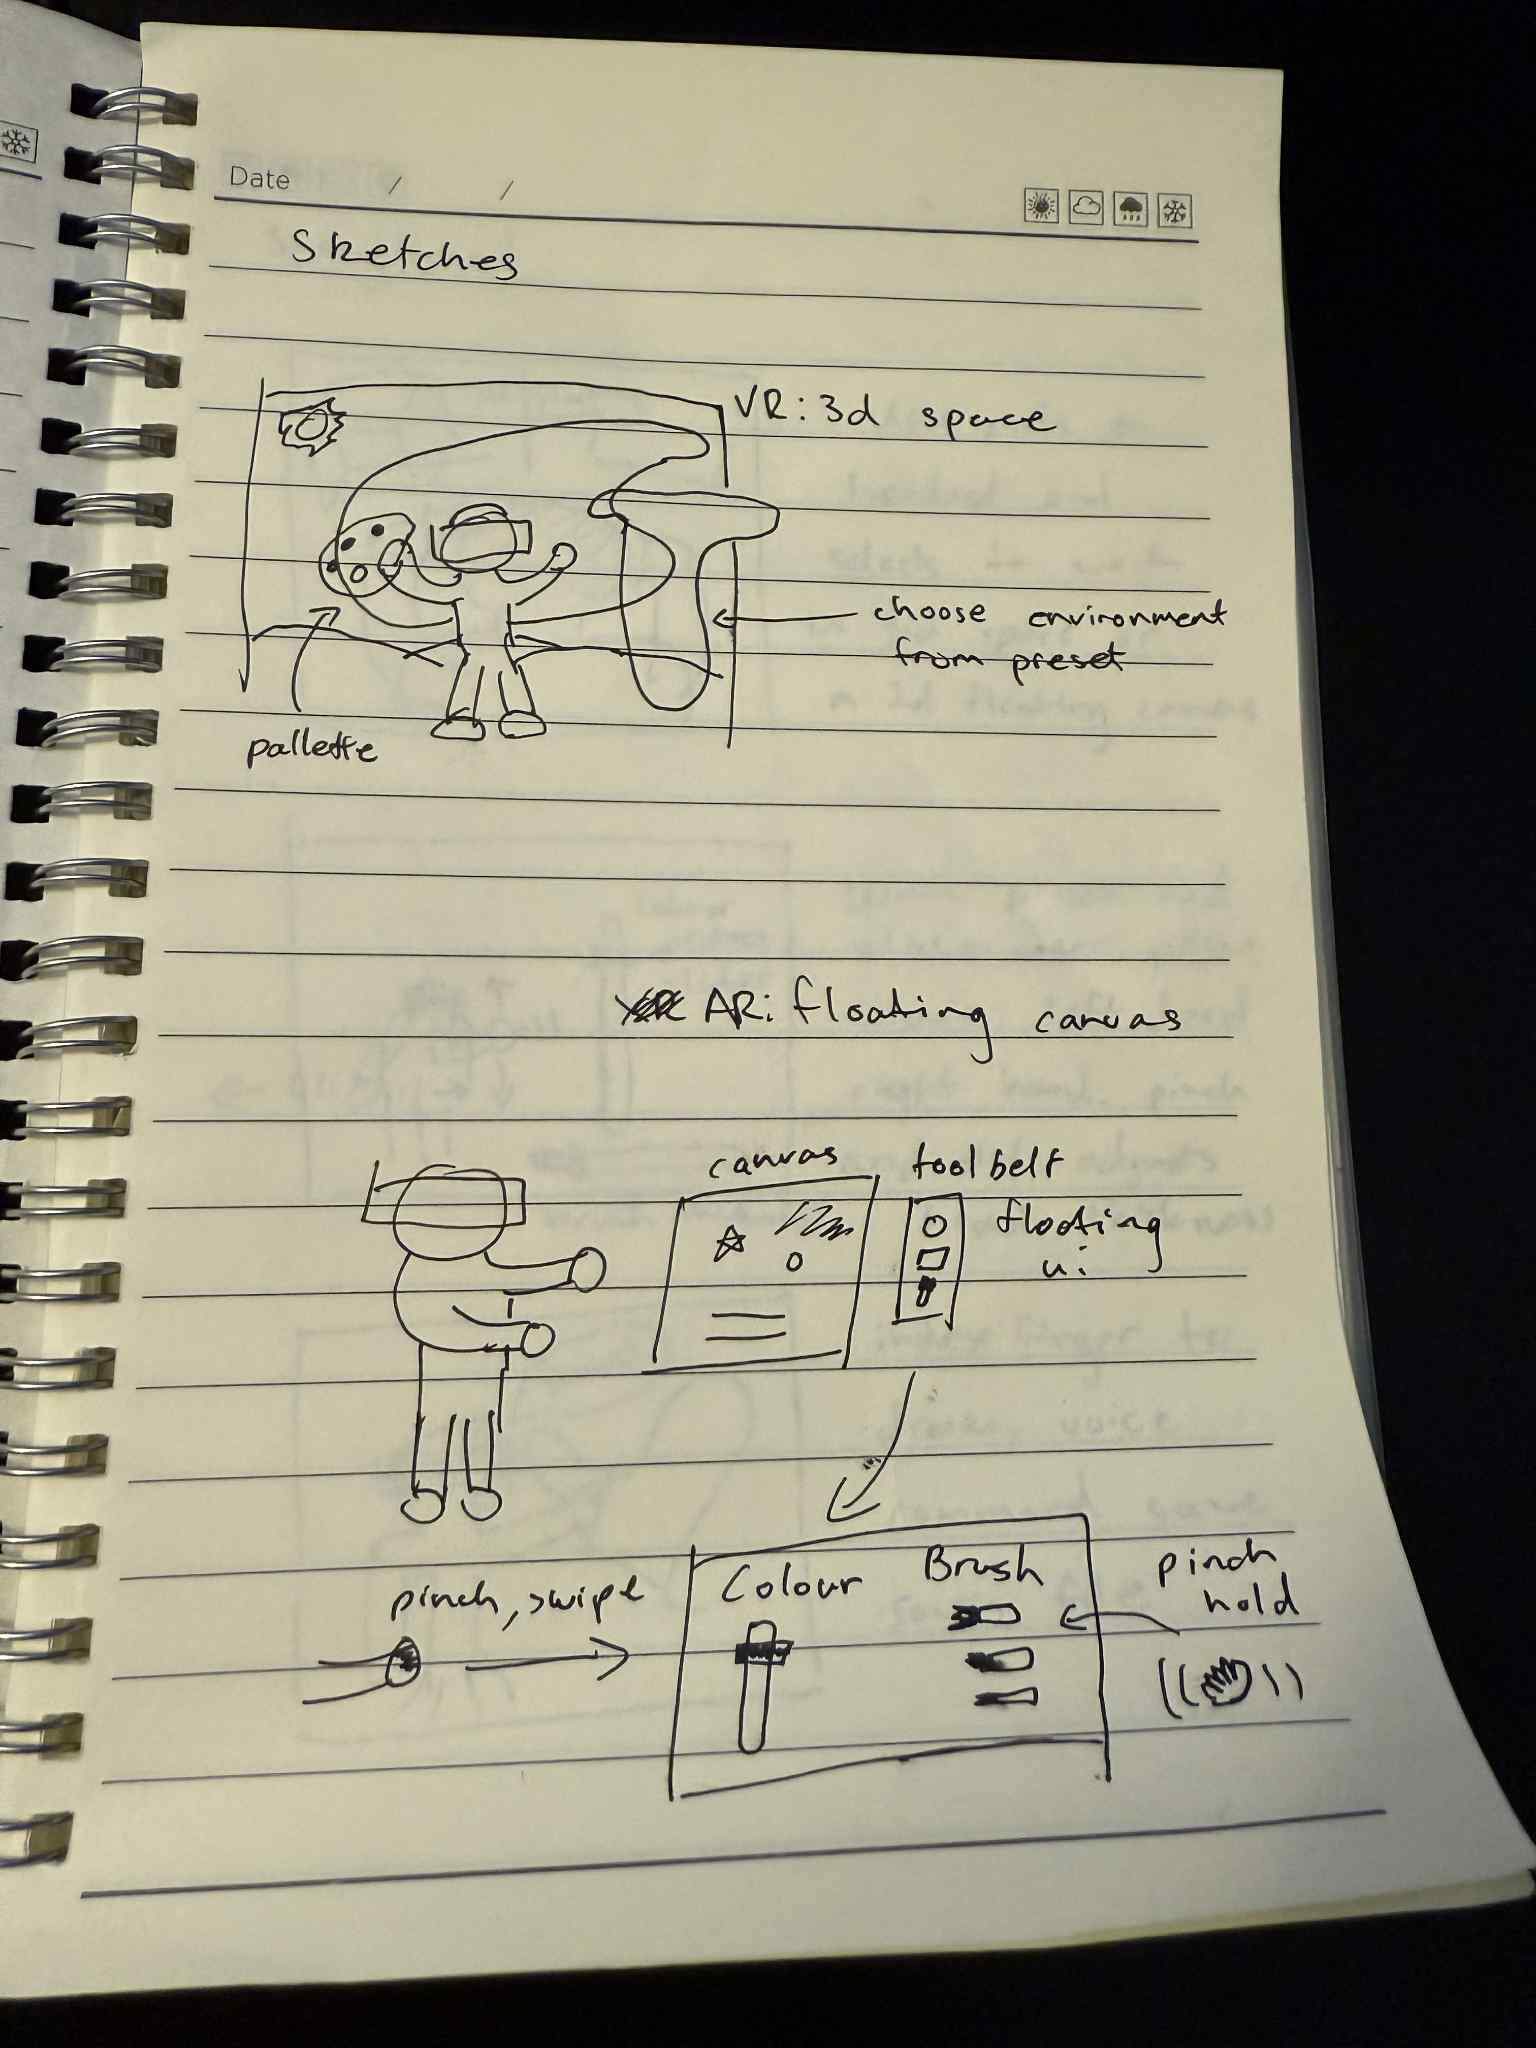 Date / /
Sketches
VR: 3d space
choose environment
from preset
pallette
AR: floating canvas
canvas
tool belt
floating
ui
pinch, swipe
Colour
Brush
pinch
hold